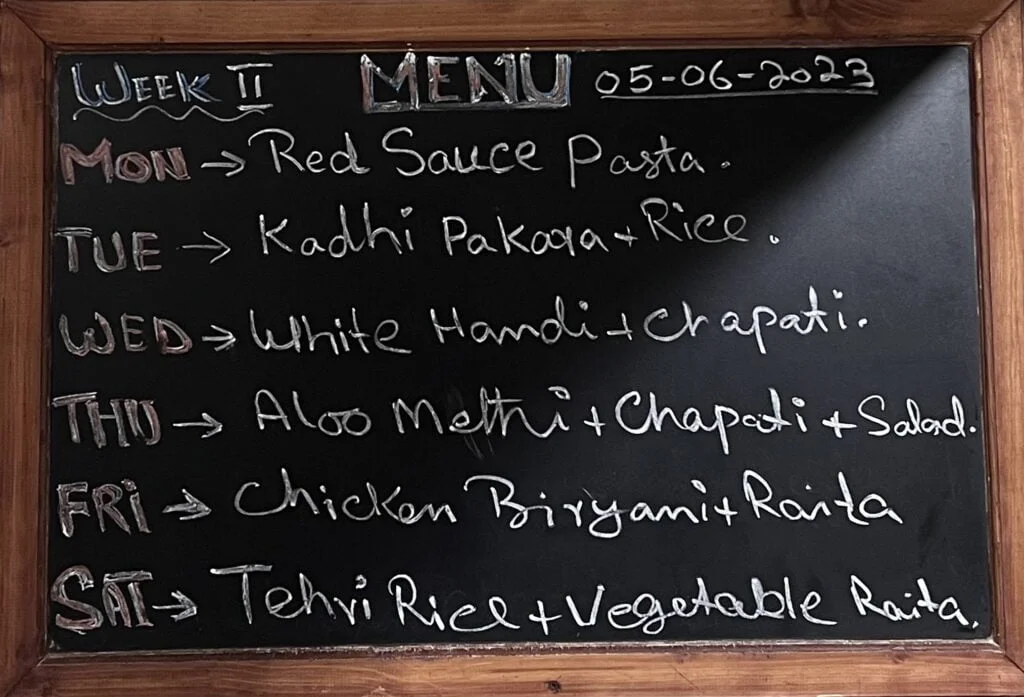 WEEK II MENU 05-06-2023
MON → Red Sauce Pasta.
TUE → Kadhi Pakora + Rice.
WED → White Handi + Chapati.
THU → Aloo Methi + Chapati + Salad.
FRi → Chicken Biryani + Raita
SAT → Tehri Rice + Vegetable Raita.